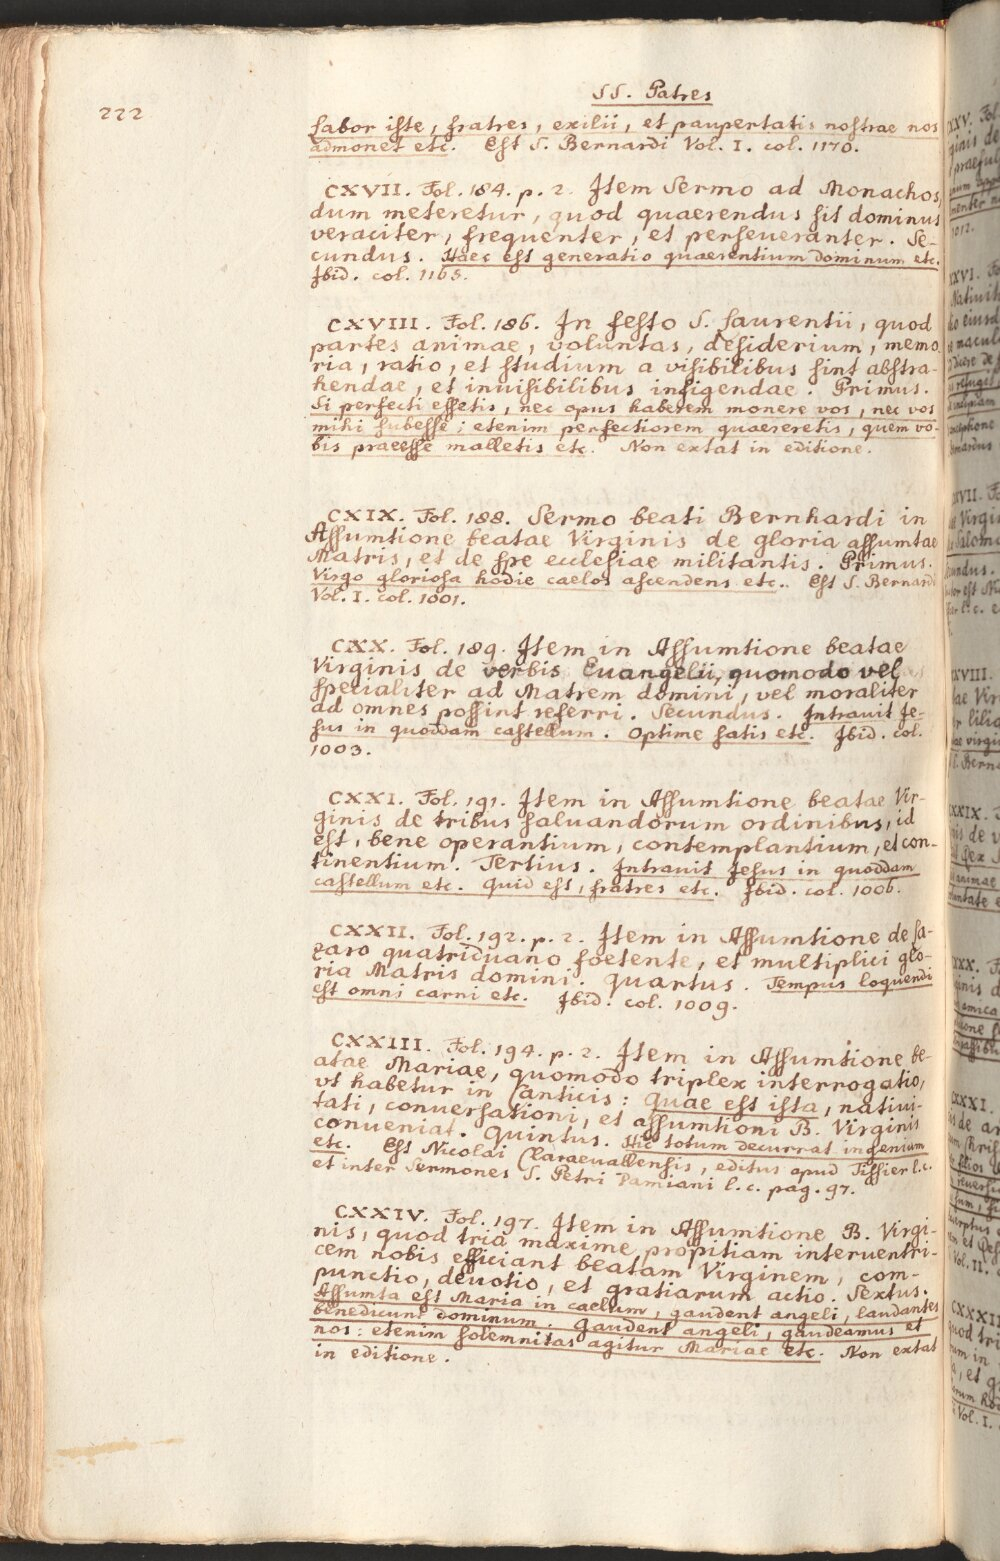 222
SS. Patres
Labor iste, fratres, exilii, et paupertatis nostrae nos
admonet etc. Est S. Bernardi Vol. I. col. 1170.
CXVII. Fol. 184. p. 2. Item Sermo ad Monachos,
dum meteretur, quod quaerendus sit dominus
veraciter, frequenter, et perseueranter. Se-
cundus. Haec est generatio quaerentium dominum etc.
Ibid. col. 1165.
CXVIII. Fol. 186. In festo S. Laurentii, quod
partes animae, voluntas, desiderium, memo
ria, ratio, et studium a visibilibus sint abstra-
hendae, et inuisibilibus infigendae. Primus.
Si perfecti essetis, nec opus haberem monere vos, nec vos
mihi subesse; etenim perfectiorem quaereretis, quem vo-
bis praeesse malletis etc. Non extat in editione.
CXIX. Fol. 188. Sermo beati Bernhardi in
Assumtione beatae Virginis de gloria assumtae
Matris, et de spe ecclesiae militantis. Primus.
Virgo gloriosa hodie caelos ascendens etc. Est S. Bernardi
Vol. I. col. 1001.
CXX. Fol. 189. Item in Assumtione beatae
Virginis de verbis Euangelii, quomodo vel
specialiter ad Matrem domini, vel moraliter
ad omnes possint referri. Secundus. Intrauit Je-
sus in quoddam castellum. Optime satis etc. Ibid. col.
1003.
CXXI. Fol. 191. Item in Assumtione beatae Vir-
ginis de tribus saluandorum ordinibus, id
est, bene operantium, contemplantium, et con-
tinentium. Tertius. Intrauit Jesus in quoddam
castellum etc. Quid est, fratres etc. Ibid. col. 1006.
CXXII. Fol. 192. p. 2. Item in Assumtione de La-
zaro quatriduano foetente, et multiplici glo-
ria Matris domini. Quartus. Tempus loquendi
est omni carni etc. Ibid. col. 1009.
CXXIII. Fol. 194. p. 2. Item in Assumtione be-
atae Mariae, quomodo triplex interrogatio,
vt habetur in Canticis: Quae est ista, natiui-
tati, conuersationi, et assumtioni B. Virginis
conueniat. Quintus. Hic totum decurrat ingenium
etc. Est Nicolai Claraeuallensis, editus apud Tissier l. c.
et inter Sermones S. Petri Damiani l. c. pag. 97.
CXXIV. Fol. 197. Item in Assumtione B. Virgi-
nis, quod tria maxime propitiam interuentri-
cem nobis efficiant beatam Virginem, com-
punctio, deuotio, et gratiarum actio. Sextus.
Assumta est Maria in caelum, gaudent angeli, laudantes
benedicunt dominum. Gaudent angeli, gaudeamus et
nos: etenim solemnitas agitur Mariae etc. Non extat
in editione.